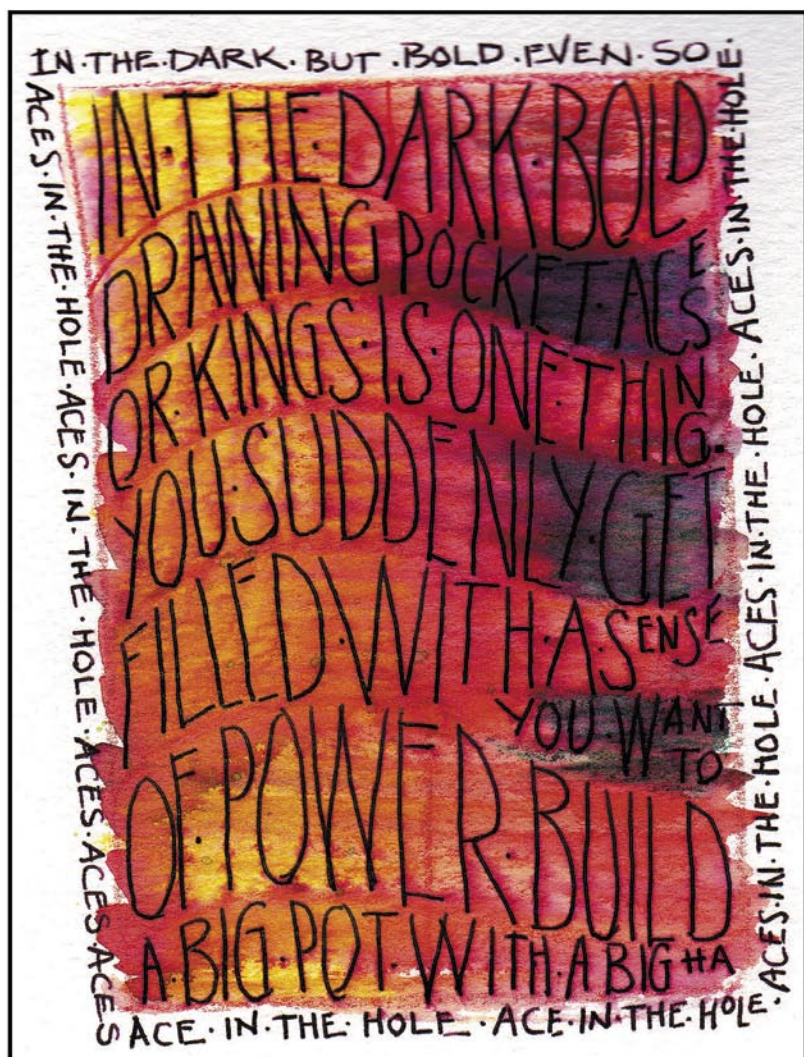 IN·THE·DARK·BUT·BOLD·EVEN·SO·
IN·THE·DARK·BOLD
DRAWING POCKET·ACES
OR·KINGS·IS·ONE·THING.
YOU·SUDDENLY·GET
FILLED·WITH·A·SENSE
YOU·WANT
TO
OF·POWER·BUILD
A·BIG·POT·WITH·A BIG HA
ACES·IN·THE·HOLE·ACES·IN·THE·HOLE·ACES·ACES·ACES
ACE·IN·THE·HOLE·ACE·IN·THE·HOLE·
ACES·IN·THE·HOLE·ACES·IN·THE·HOLE·ACES·IN·THE·HOLE·